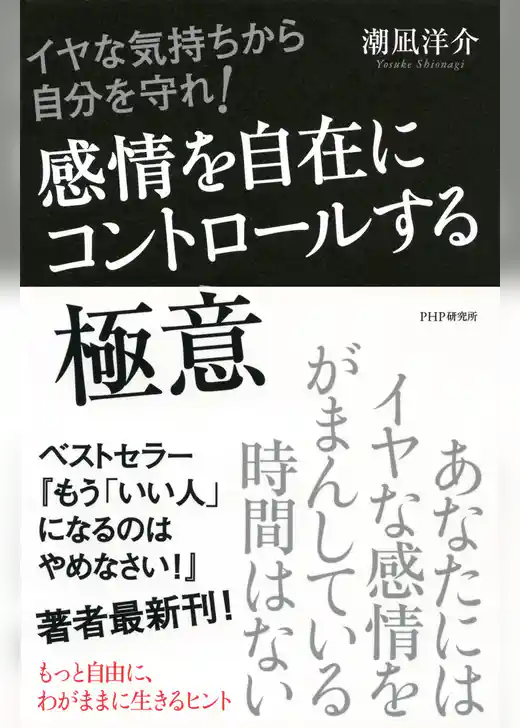 イヤな気持ちから
自分を守れ!
潮凪洋介
Yosuke Shionagi
感情を自在に
コントロールする
極意
PHP研究所
あなたには
イヤな感情を
がまんしている
時間はない
ベストセラー
『もう「いい人」
になるのは
やめなさい!』
著者最新刊!
もっと自由に、
わがままに生きるヒント